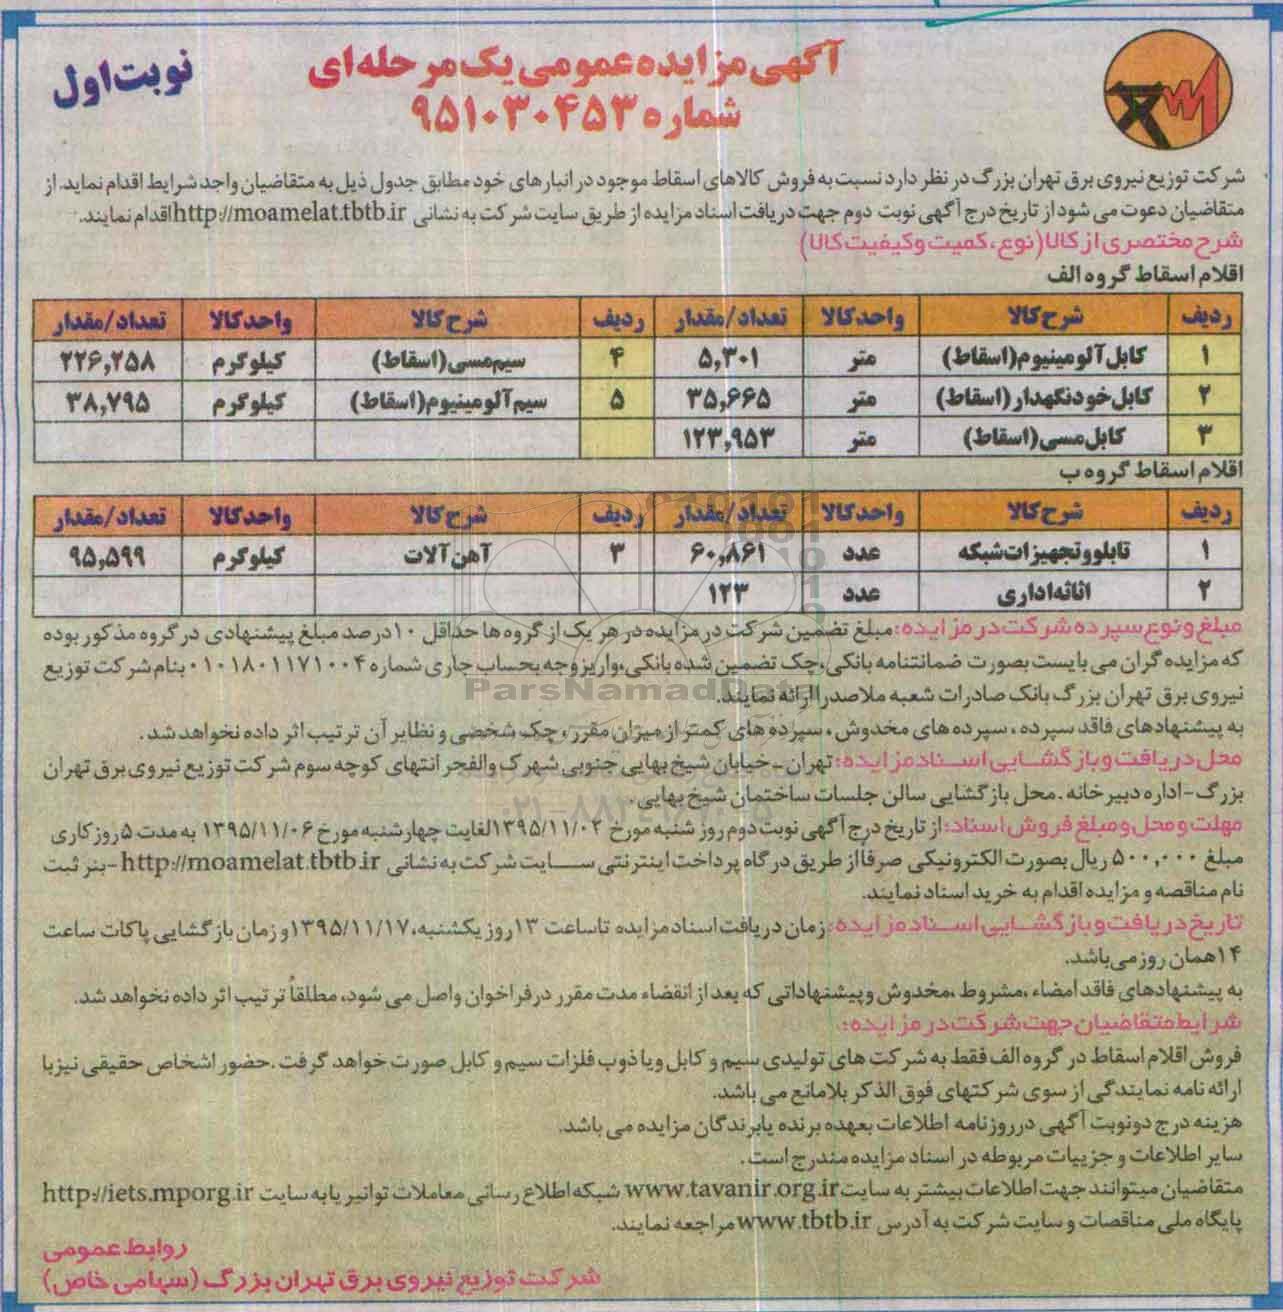 آگهی مزایده عمومی یک مرحله‌ای
شماره ۹۵۱۰۳۰۴۵۳
نوبت اول
شرکت توزیع نیروی برق تهران بزرگ در نظر دارد نسبت به فروش کالاهای اسقاط موجود در انبارهای خود مطابق جدول ذیل به متقاضیان واجد شرایط اقدام نماید. از
متقاضیان دعوت می شود از تاریخ درج آگهی نوبت دوم جهت دریافت اسناد مزایده از طریق سایت شرکت به نشانی http://moamelat.tbtb.ir اقدام نمایند.
شرح مختصری از کالا (نوع، کمیت و کیفیت کالا)
اقلام اسقاط گروه الف
ردیف شرح کالا واحد کالا تعداد/مقدار ردیف شرح کالا واحد کالا تعداد/مقدار
۱ کابل آلومینیوم (اسقاط) متر ۵,۳۰۱ ۴ سیم مسی (اسقاط) کیلوگرم ۲۲۶,۲۵۸
۲ کابل خودنگهدار (اسقاط) متر ۳۵,۶۶۵ ۵ سیم آلومینیوم (اسقاط) کیلوگرم ۳۸,۷۹۵
۳ کابل مسی (اسقاط) متر ۱۲۳,۹۵۳
اقلام اسقاط گروه ب
ردیف شرح کالا واحد کالا تعداد/مقدار ردیف شرح کالا واحد کالا تعداد/مقدار
۱ تابلو و تجهیزات شبکه عدد ۶۰,۸۶۱ ۳ آهن آلات کیلوگرم ۹۵,۵۹۹
۲ اثاثه اداری عدد ۱۲۳
مبلغ و نوع سپرده شرکت در مزایده: مبلغ تضمین شرکت در مزایده در هر یک از گروه ها حداقل ۱۰ درصد مبلغ پیشنهادی در گروه مذکور بوده
که مزایده گران می بایست بصورت ضمانتنامه بانکی، چک تضمین شده بانکی، واریز وجه بحساب جاری شماره ۰۱۰۱۸۰۱۱۷۱۰۰۴ بنام شرکت توزیع
نیروی برق تهران بزرگ بانک صادرات شعبه ملاصدرا ارائه نمایند.
به پیشنهادهای فاقد سپرده، سپرده های مخدوش، سپرده های کمتر از میزان مقرر، چک شخصی و نظایر آن ترتیب اثر داده نخواهد شد.
محل دریافت و بازگشایی اسناد مزایده: تهران - خیابان شیخ بهایی جنوبی شهرک والفجر انتهای کوچه سوم شرکت توزیع نیروی برق تهران
بزرگ - اداره دبیرخانه. محل بازگشایی سالن جلسات ساختمان شیخ بهایی.
مهلت و محل و مبلغ فروش اسناد: از تاریخ درج آگهی نوبت دوم روز شنبه مورخ ۱۳۹۵/۱۱/۰۲ لغایت چهارشنبه مورخ ۱۳۹۵/۱۱/۰۶ به مدت ۵ روز کاری
مبلغ ۵۰۰,۰۰۰ ریال بصورت الکترونیکی صرفاً از طریق درگاه پرداخت اینترنتی سایت شرکت به نشانی http://moamelat.tbtb.ir - بنر ثبت
نام مناقصه و مزایده اقدام به خرید اسناد نمایند.
تاریخ دریافت و بازگشایی اسناد مزایده: زمان دریافت اسناد مزایده تا ساعت ۱۳ روز یکشنبه، ۱۳۹۵/۱۱/۱۷ و زمان بازگشایی پاکات ساعت
۱۴ همان روز می‌باشد.
به پیشنهادهای فاقد امضاء، مشروط، مخدوش و پیشنهاداتی که بعد از انقضاء مدت مقرر در فراخوان واصل می شود، مطلقاً ترتیب اثر داده نخواهد شد.
شرایط متقاضیان جهت شرکت در مزایده:
فروش اقلام اسقاط در گروه الف فقط به شرکت های تولیدی سیم و کابل و یا ذوب فلزات سیم و کابل صورت خواهد گرفت. حضور اشخاص حقیقی نیز با
ارائه نامه نمایندگی از سوی شرکتهای فوق الذکر بلامانع می باشد.
هزینه درج دو نوبت آگهی در روزنامه اطلاعات بعهده برنده یا برندگان مزایده می باشد.
سایر اطلاعات و جزییات مربوطه در اسناد مزایده مندرج است.
متقاضیان میتوانند جهت اطلاعات بیشتر به سایت www.tavanir.org.ir شبکه اطلاع رسانی معاملات توانیر یا به سایت http://iets.mporg.ir
پایگاه ملی مناقصات و سایت شرکت به آدرس www.tbtb.ir مراجعه نمایند.
روابط عمومی
شرکت توزیع نیروی برق تهران بزرگ (سهامی خاص)
ParsNamadData